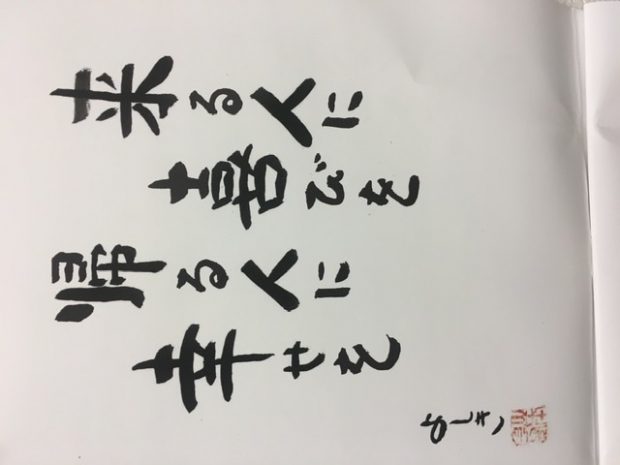 来る人に
喜びを
帰る人に
幸せを